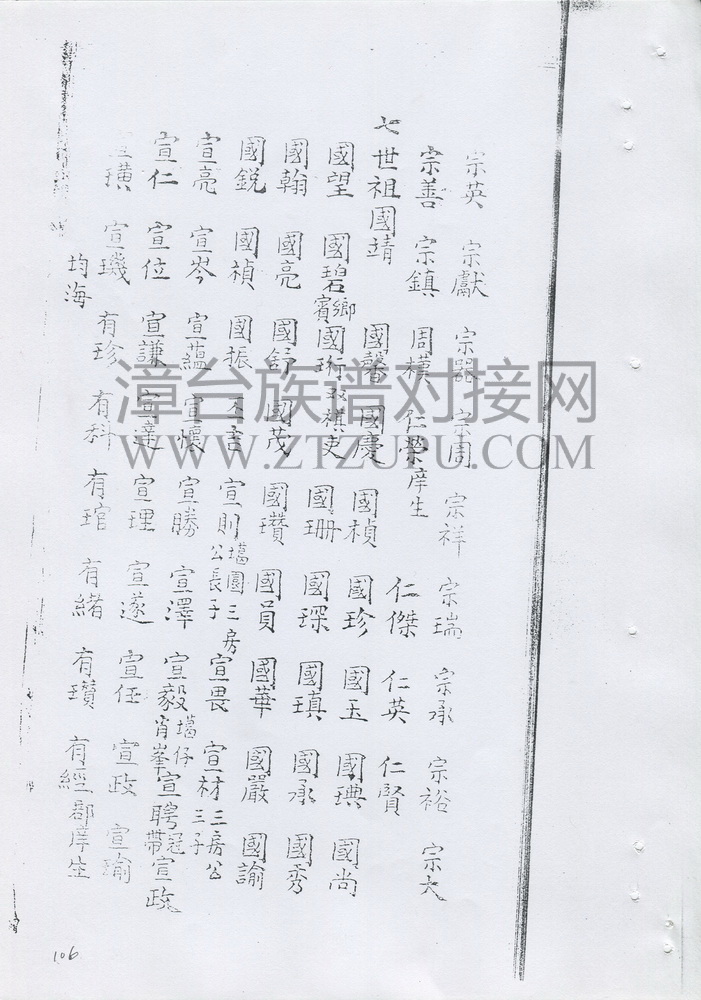 宗英 宗獻 宗器 宗周 宗祥 宗瑞 宗承 宗裕 宗大
宗善 宗鎮 周樸 仁榮庠生 仁傑 仁英 仁賢
七世祖國靖 國馨 國慶 國楨 國珍 國玉 國琠 國尚
國望 國碧鄉賓 國珩 國珊 國琛 國瑱 國承 國秀
國翰 國亮 國舒 國茂 國瓚 國員 國華 國嚴 國諭
國銳 國禎 國振 宣則 宣畏 宣材
宣亮 宣岑 宣蘊 宣懷 宣勝 宣澤 宣毅 宣聘冠帶 宣政
宣仁 宣位 宣謙 宣達 宣理 宣遂 宣任 宣政 宣瑜
宣璜 宣璣 有珍 有科 有琯 有緒 有瓚 有經郡庠生
均海
漳台族谱对接网
WWW.ZTZUPU.COM
106